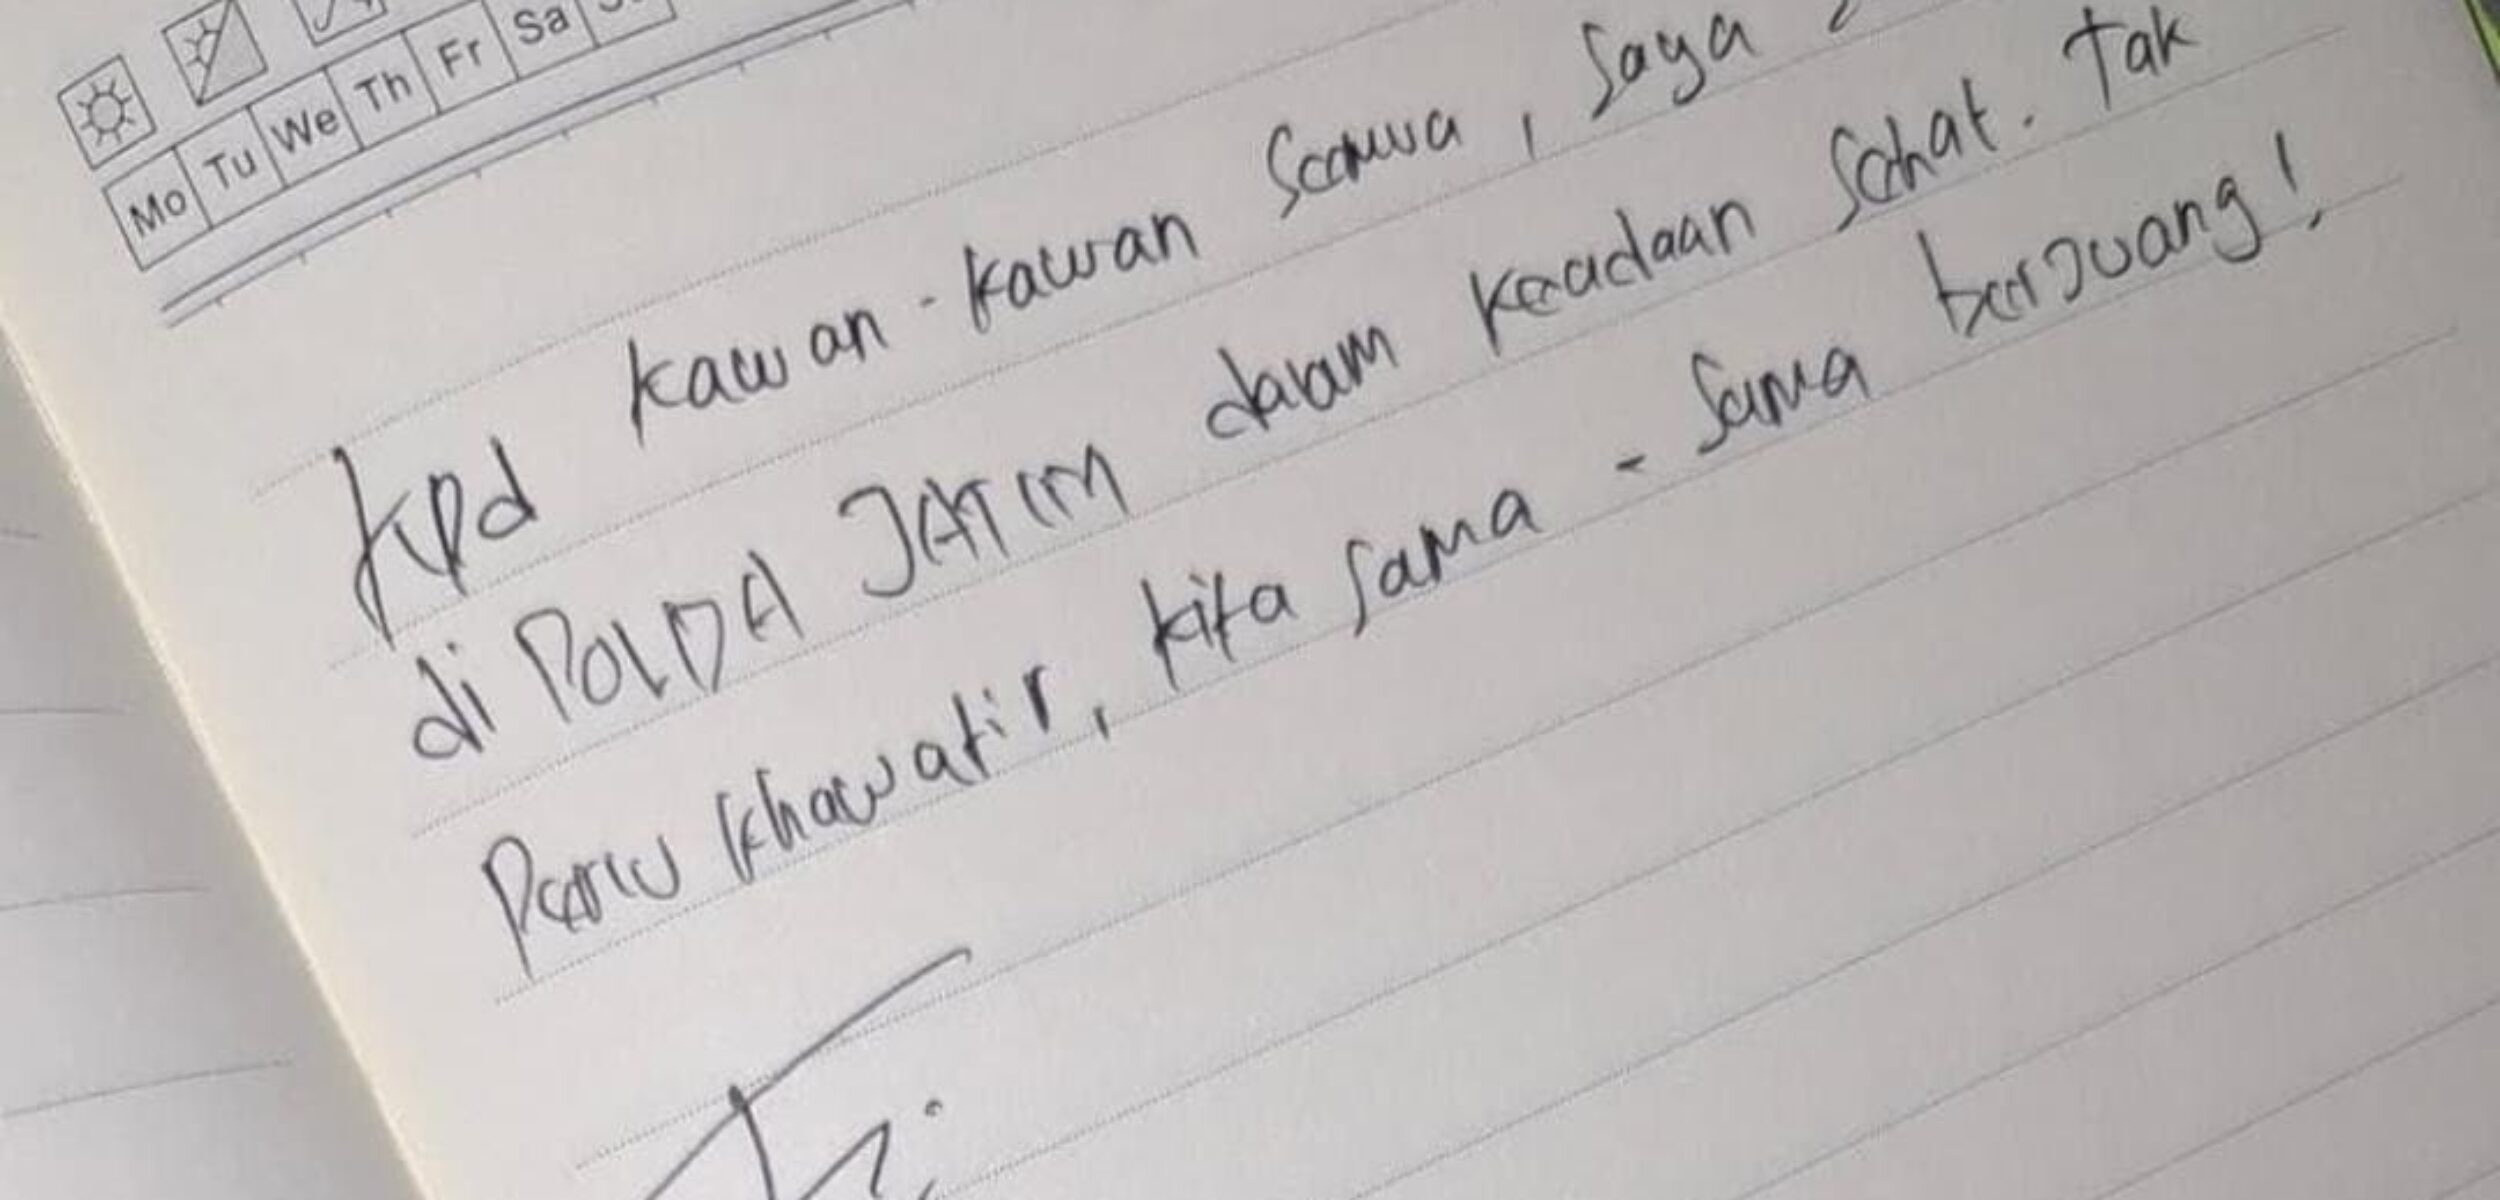 Mo Tu We Th Fr Sa
Kpd kawan-kawan semua, saya
di POLDA JATIM dalam keadaan sehat. Tak
perlu khawatir, kita sama-sama berjuang!